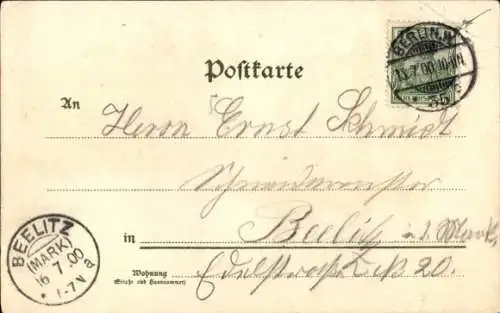 BERLIN.W.
15.7.00.10-11N.
35 c
Postkarte
An
Herrn Ernst Schmidt
Schneidermeister
in Beelitz i. d. Mark
Wohnung
(Straße und Hausnummer)
20.
BEELITZ
(MARK)
16 7 00
* 1-7V a